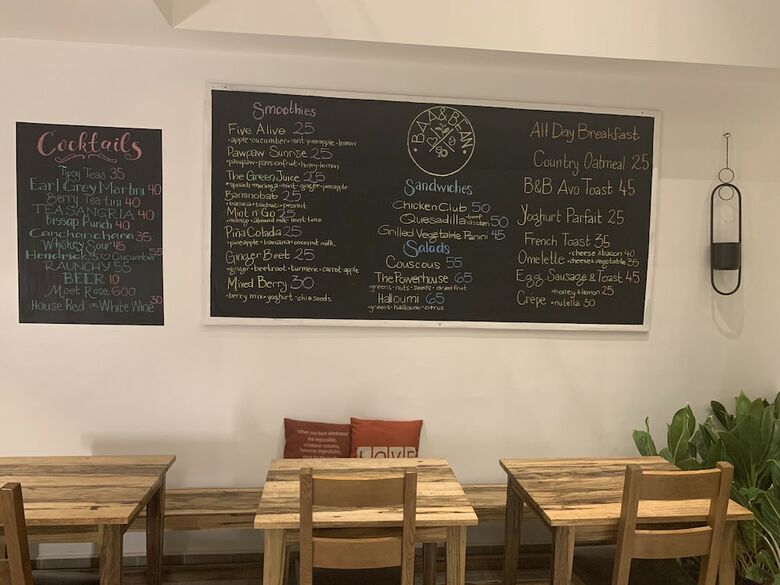 Cocktails
Tipsy Teas 35
Earl Grey Martini 40
Berry Tea·tini 40
TEA SANGRIA 40
Lissap Punch 40
Canchanchara 35
Whiskey Sour 45
Hendrick's Cucumber 55
RAUNCHY 55
BEER 10
Moet Rose 600
House Red or White Wine 30
Smoothies
Five Alive 25
·apple·cucumber·mint·pineapple·lemon
Pawpaw Sunrise 25
·pawpaw·passionfruit·honey·lemon
The Green Juice 25
·spinach·moringa·mint·ginger·pineapple
Baranobab 25
·banana·baobab·peanut
Mint n' Go 25
·mango·almond·mint·lime
Piña Colada 25
·pineapple·banana·coconut milk
Ginger Beet 25
·ginger·beetroot·turmeric·carrot·apple
Mixed Berry 30
·berry mix·yoghurt·chia seeds
BAA & BEAN
Sandwiches
Chicken Club 50
Quesadilla ·beef ·chicken 50
Grilled Vegetable Panini 45
Salads
Couscous 55
The Powerhouse 65
·greens·nuts·seeds·dried fruit
Halloumi 65
greens·halloumi·citrus
All Day Breakfast
Country Oatmeal 25
B&B Avo Toast 45
Yoghurt Parfait 25
French Toast 35
Omelette ·cheese & bacon 40
·cheese & vegetable 35
Egg Sausage & Toast 45
Crepe ·honey & lemon 25
·nutella 30
when you have eliminated
the impossible,
whatever remains,
however improbable
must be the truth
LOVE